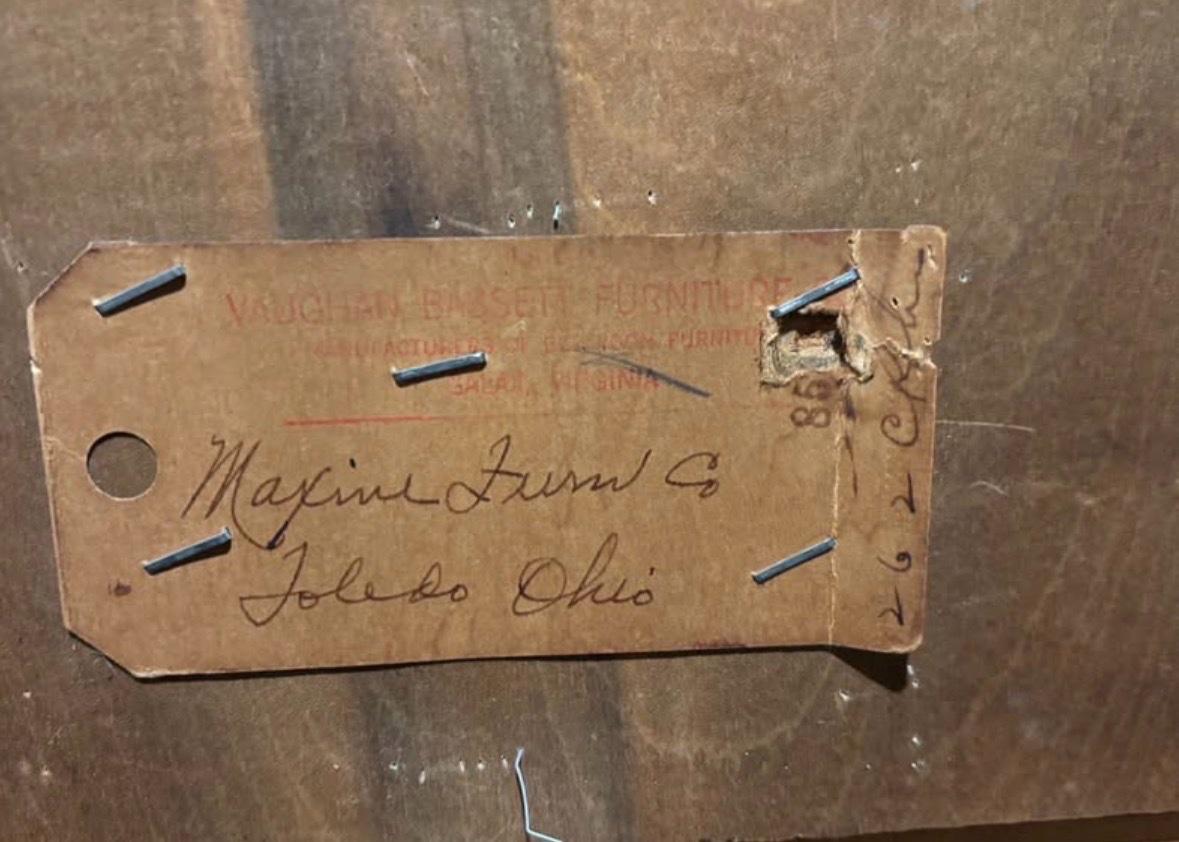 VAUGHAN BASSETT FURNITURE
MANUFACTURERS OF BEDROOM FURNITURE
GALAX, VIRGINIA
Maxine Furn Co
Toledo Ohio
98
262